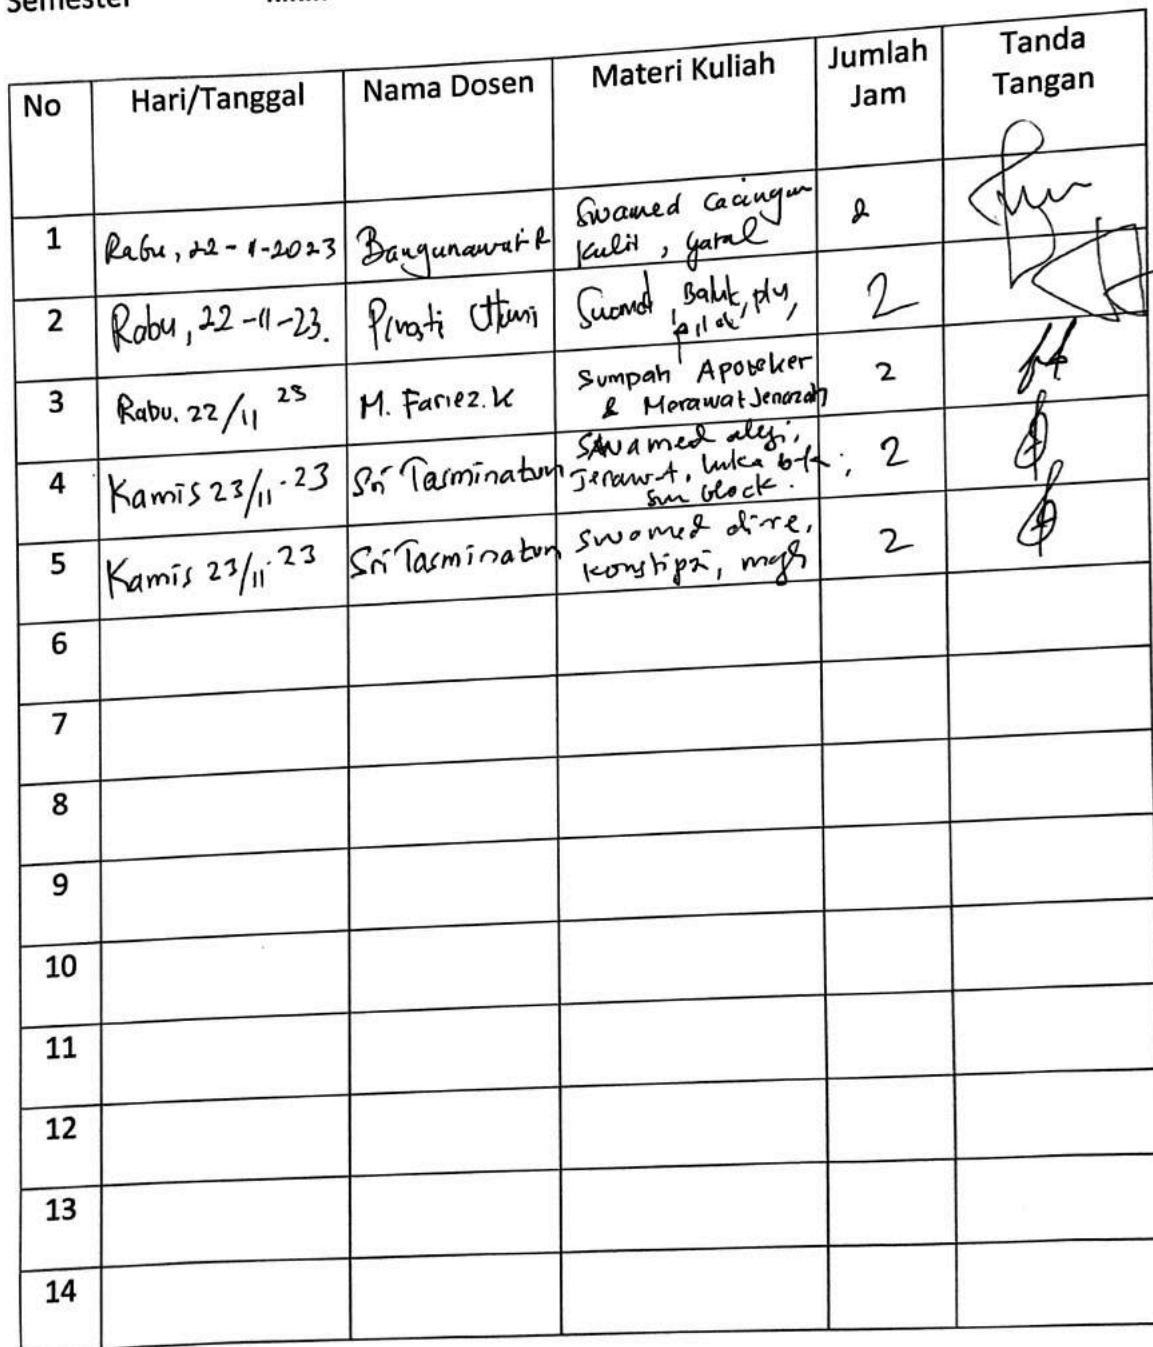 Semester
No Hari/Tanggal Nama Dosen Materi Kuliah Jumlah Jam Tanda Tangan
1 Rabu, 22-11-2023 Bangunawati R Swamed Cacingan Kulit, gatal 2
2 Rabu, 22-11-23. Pinasti Utami Swamed Batuk, plu, pilek 2
3 Rabu. 22/11 23 M. Fariez. K Sumpah Apoteker & Merawat Jenazah 2
4 Kamis 23/11-23 Sri Tasminatun SWamed alegi, Jerawat, luka b-k; sun block. 2
5 Kamis 23/11-23 Sri Tasminatun swamed diare, konstipsi, 2
6
7
8
9
10
11
12
13
14